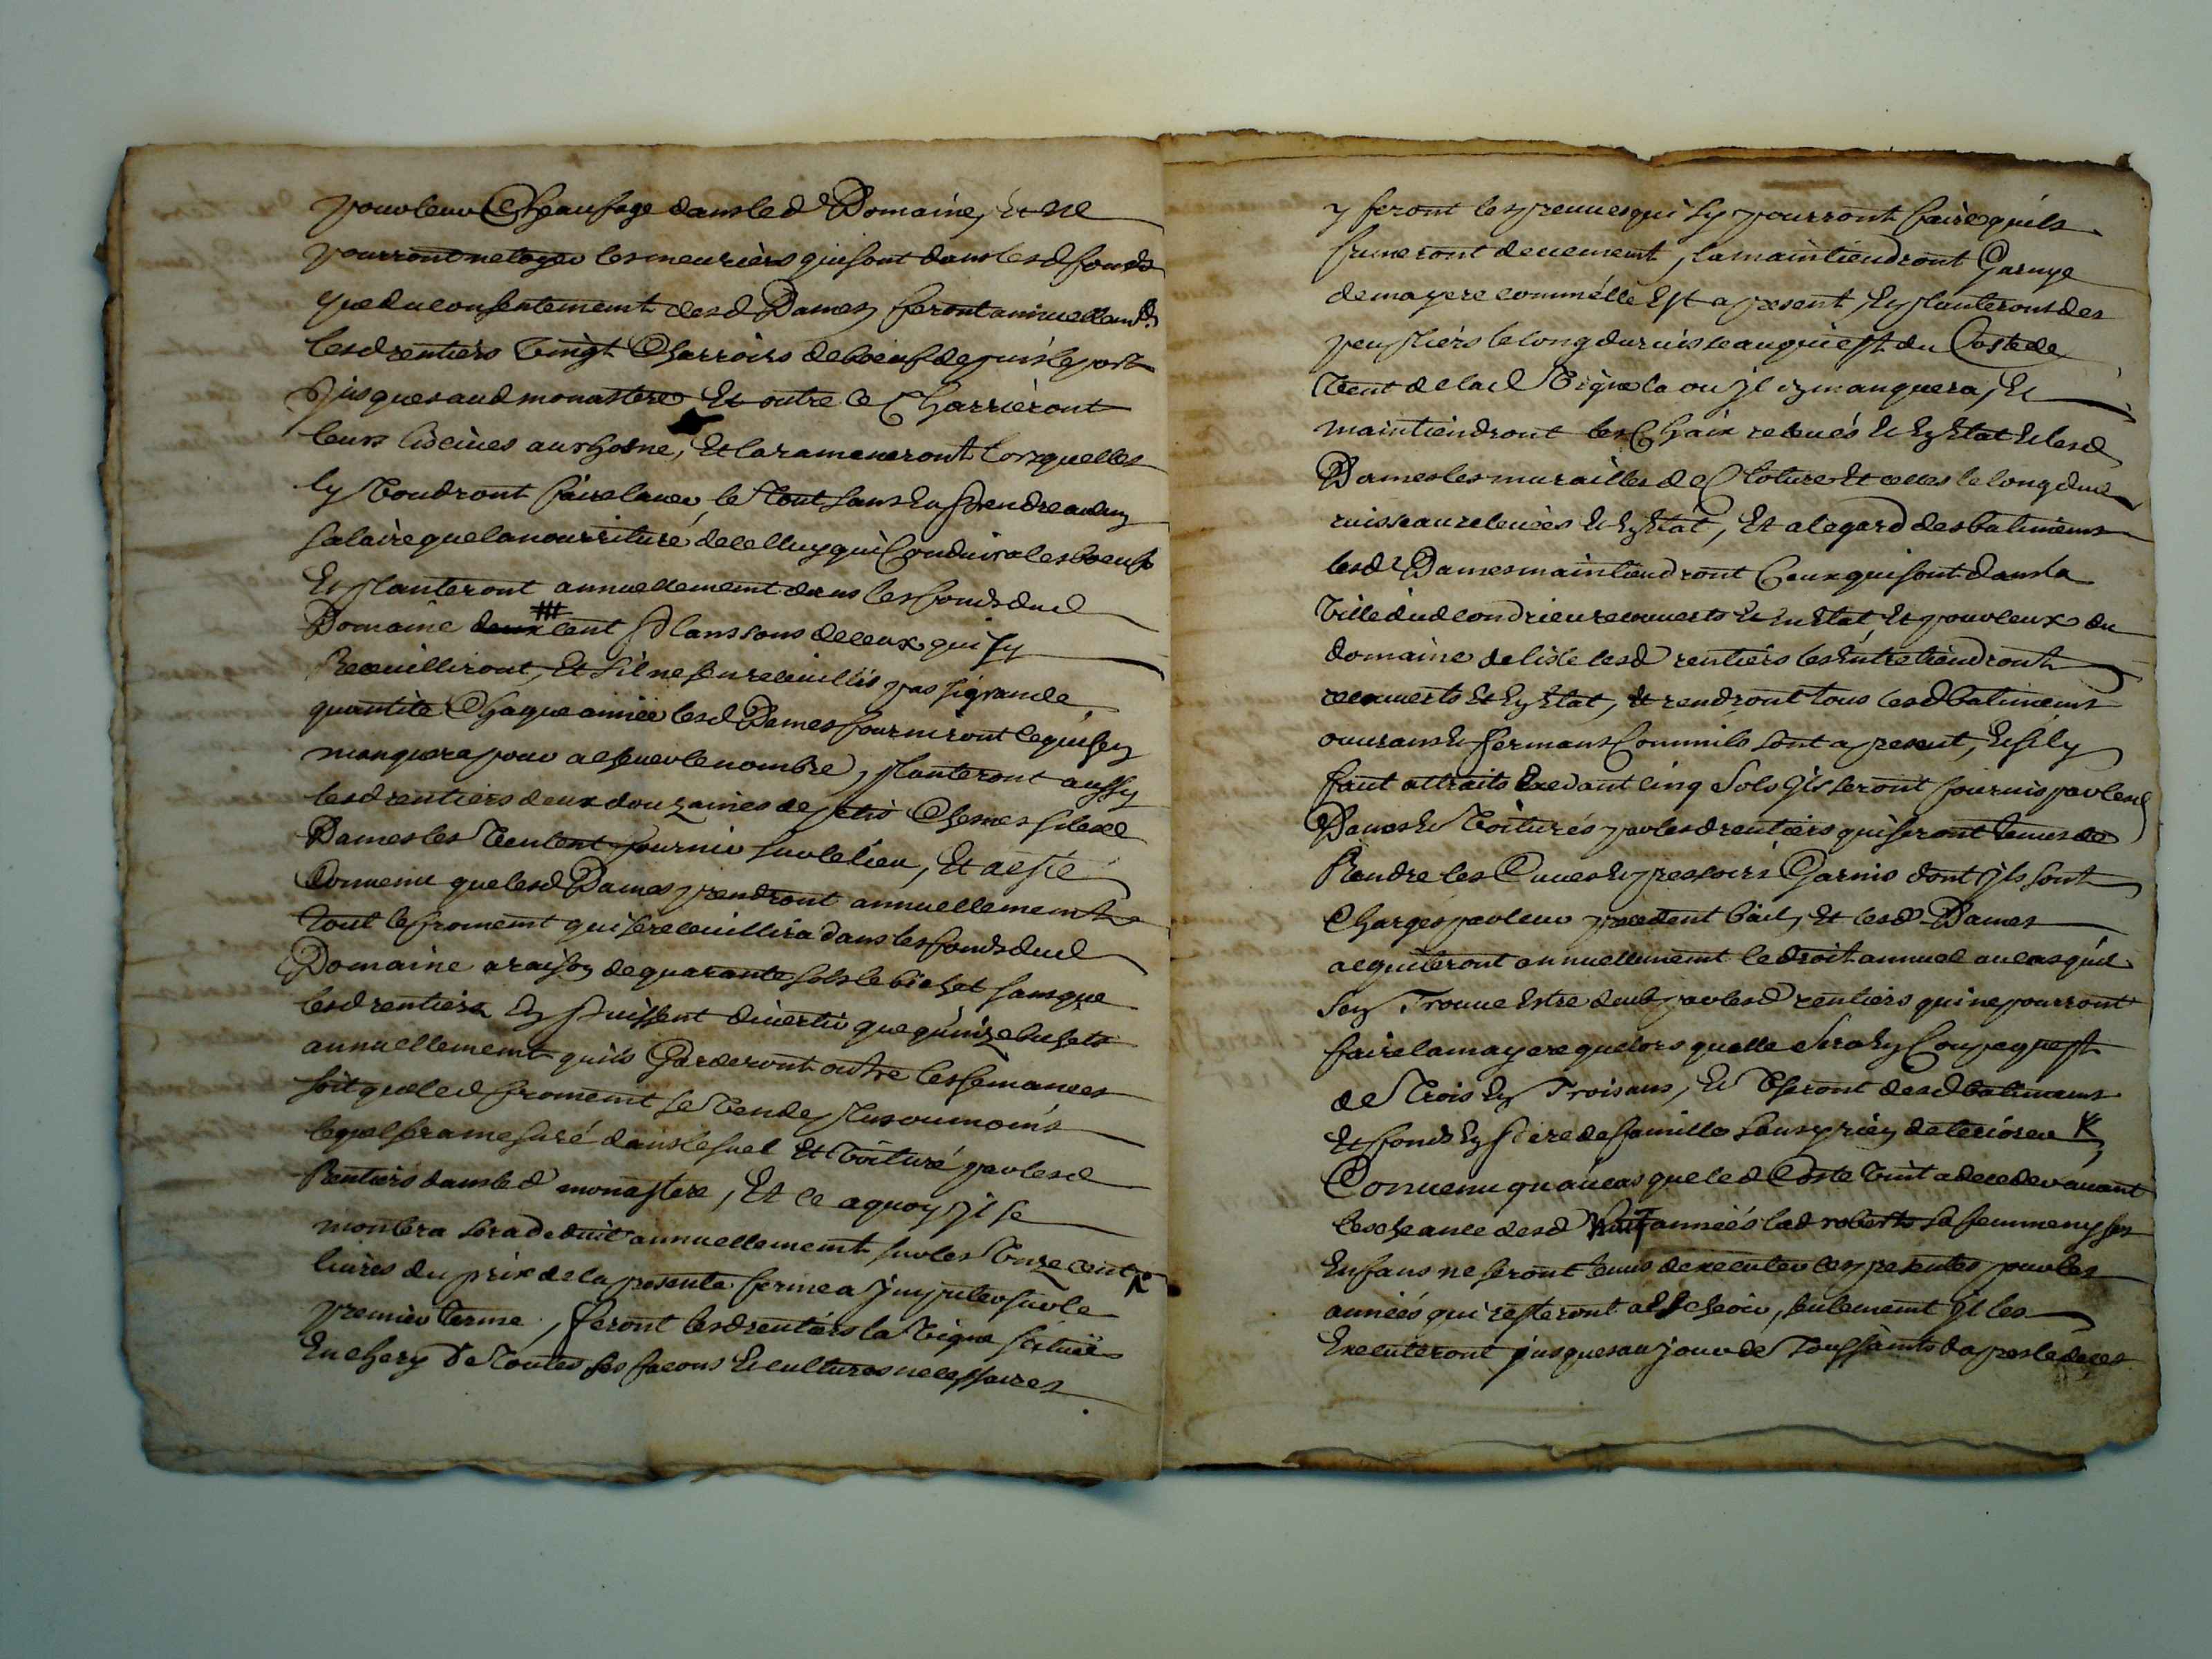 pour leur Chaufage dans led Domaine, Et ne
pourront netoyer les meuriers qui sont dans lesd fonds
que du consentement desd Dames, feront annuellemt
lesd rentiers vingt Charrois de boeuf depuis le port
jusques aud monastere Et outre ce Charrieront
leurs lescives au rhosne, Et la rameneront lorsquelles
ly voudront faire laver, le tout sans en prendre aucun
salaire que la nourriture de celluy qui Conduira les boeufs
Et planteront annuellement dans les fonds dud
Domaine cent plansons de ceux qui sy
Recuilliront, Et sil ne sen recuillis pas si grande
quantité Chaque année lesd Dames fourniront ce qui sen
manquera pour achever le nombre, planteront aussy
lesd rentiers deux douzaines de petits Chesnes si lesd
Dames les veulent fournir sur le lieu, Et a esté
Convenu que lesd Dames prendront annuellement
tout le froment qui se recuillira dans les fonds dud
Domaine a raison de quarante sols le bichet sans que
lesd rentiers En puissent divertir que quinze bichets
annuellement quils Garderont outre les semances
soit que led froment se vende plus ou moins
lequel sera mesuré dans le suel Et voituré par lesd
Rentiers dans led monastere, Et ce a quoy jl se
montera sera deduit annuellement sur les onze cent
livres du prix de la presente ferme a jmputer sur le
premier terme, feront lesd rentiers la vigne scituée
En chery de toutes ses facons Et cultures necessaires
y feront les preuves qui sy pourront faire quils
fumeront deuement, la maintiendront Garnye
de mayere comme elle Est a present, Ey planteront des
peupliers le long du ruisseau qui est du Costé de
vent de lad vigne la ou jl en manquera, Et
maintiendront les Chaix relevés Et En Etat Et lesd
Dames les murailles de Cloture Et celles le long dud
ruisseau relevées Et En Etat, Et a legard des batiments
lesd Dames maintiendront Ceux qui sont dans la
ville dud Condrieu recouverts Et En Etat Et pour ceux du
domaine de lisle lesd rentiers les Entretiendront
recouverts Et En Etat, Et rendront tous lesd batiments
ouvrans Et fermans Comm'ils sont a present, Et sil y
faut attraits Exedant cinq sols jls seront fournis par lesd
Dames Et voiturés par lesd rentiers qui seront tenus de
Rendre les Cuves Et pressoirs Garnis dont jls sont
Chargés par leur precedent bail, Et lesd Dames
acquiteront annuellement le droit annuel au cas quil
sen trouve Estre deub par lesd rentiers qui ne pourront
faire la mayere que lors quelle sera En Coupe quest
de trois En trois ans, Et Useront desd batiments
Et fonds En pere de famille sans y rien deteriorer
Convenu qu'au cas que led Coste vint a deceder avant
lescheance desd huit années lad roberts sa femme ny ses
Enfans ne seront tenus dexecuter les presentes pour les
années qui resteront a Escheoir, seulement jl les
Executeront jusques au jour de Toussaints dapres le deces